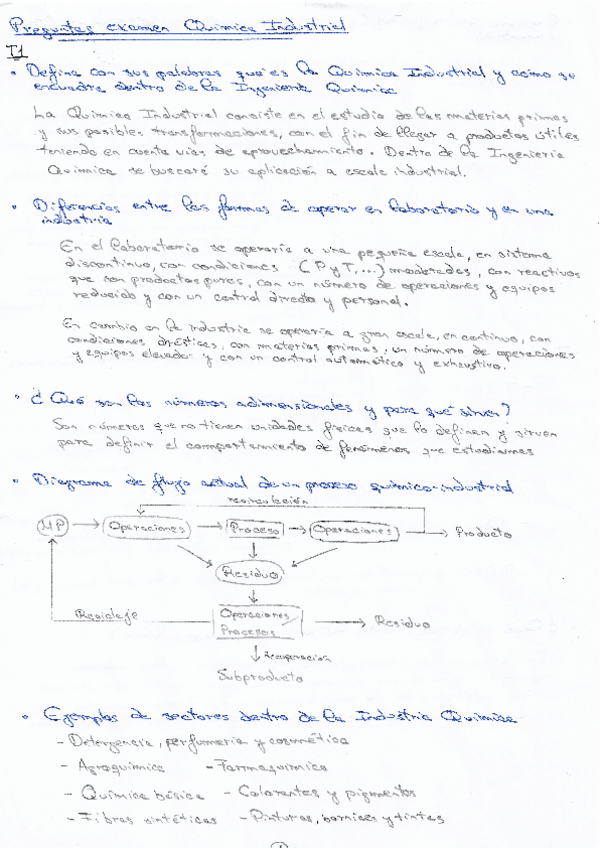 Preguntas examen Química Industrial
T1
• Defina con sus palabras que es la Química Industrial y como se
encuadra dentro de la Ingeniería Química
La Química Industrial consiste en el estudio de las materias primas
y sus posibles transformaciones, con el fin de llegar a productos útiles
teniendo en cuenta vias de aprovechamiento. Dentro de la Ingeniería
Química se buscará su aplicación a escala industrial.
• Diferencias entre las formas de operar en laboratorio y en una
industria
En el laboratorio se operaría a una pequeña escala, en sistema
discontinuo, con condiciones (P y T,...) moderadas, con reactivos
que son productos puros, con un número de operaciones y equipos
reducido y con un control directo y personal.
En cambio en la industria se operaría a gran escala, en continuo, con
condiciones drásticas, con materias primas, un número de operaciones
y equipos elevado y con un control automático y exhaustivo.
• ¿Qué son los números adimensionales y para qué sirven?
Son números que no tienen unidades físicas que lo definan y sirven
para definir el comportamiento de fenómenos que estudiamos
• Diagrama de flujo actual de un proceso químico-industrial
recirculación
MP
Operaciones
Proceso
Operaciones
Producto
Residuo
Reciclaje
Operaciones
Procesos
Residuo
Recuperación
Subproducto
• Ejemplos de sectores dentro de la Industria Química
- Detergencia, perfumería y cosmética
- Agroquímica - Farmaquímica
- Química básica - Colorantes y pigmentos
- Fibras sintéticas - Pinturas, barnices y tintas
1